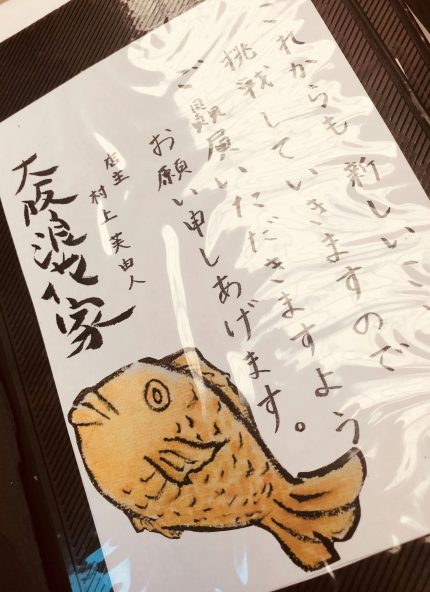 これからも、新しいこ
挑戦していきますので
ご贔屓いただきますよう
お願い申しあげます。
店主 村上
大阪浪花家